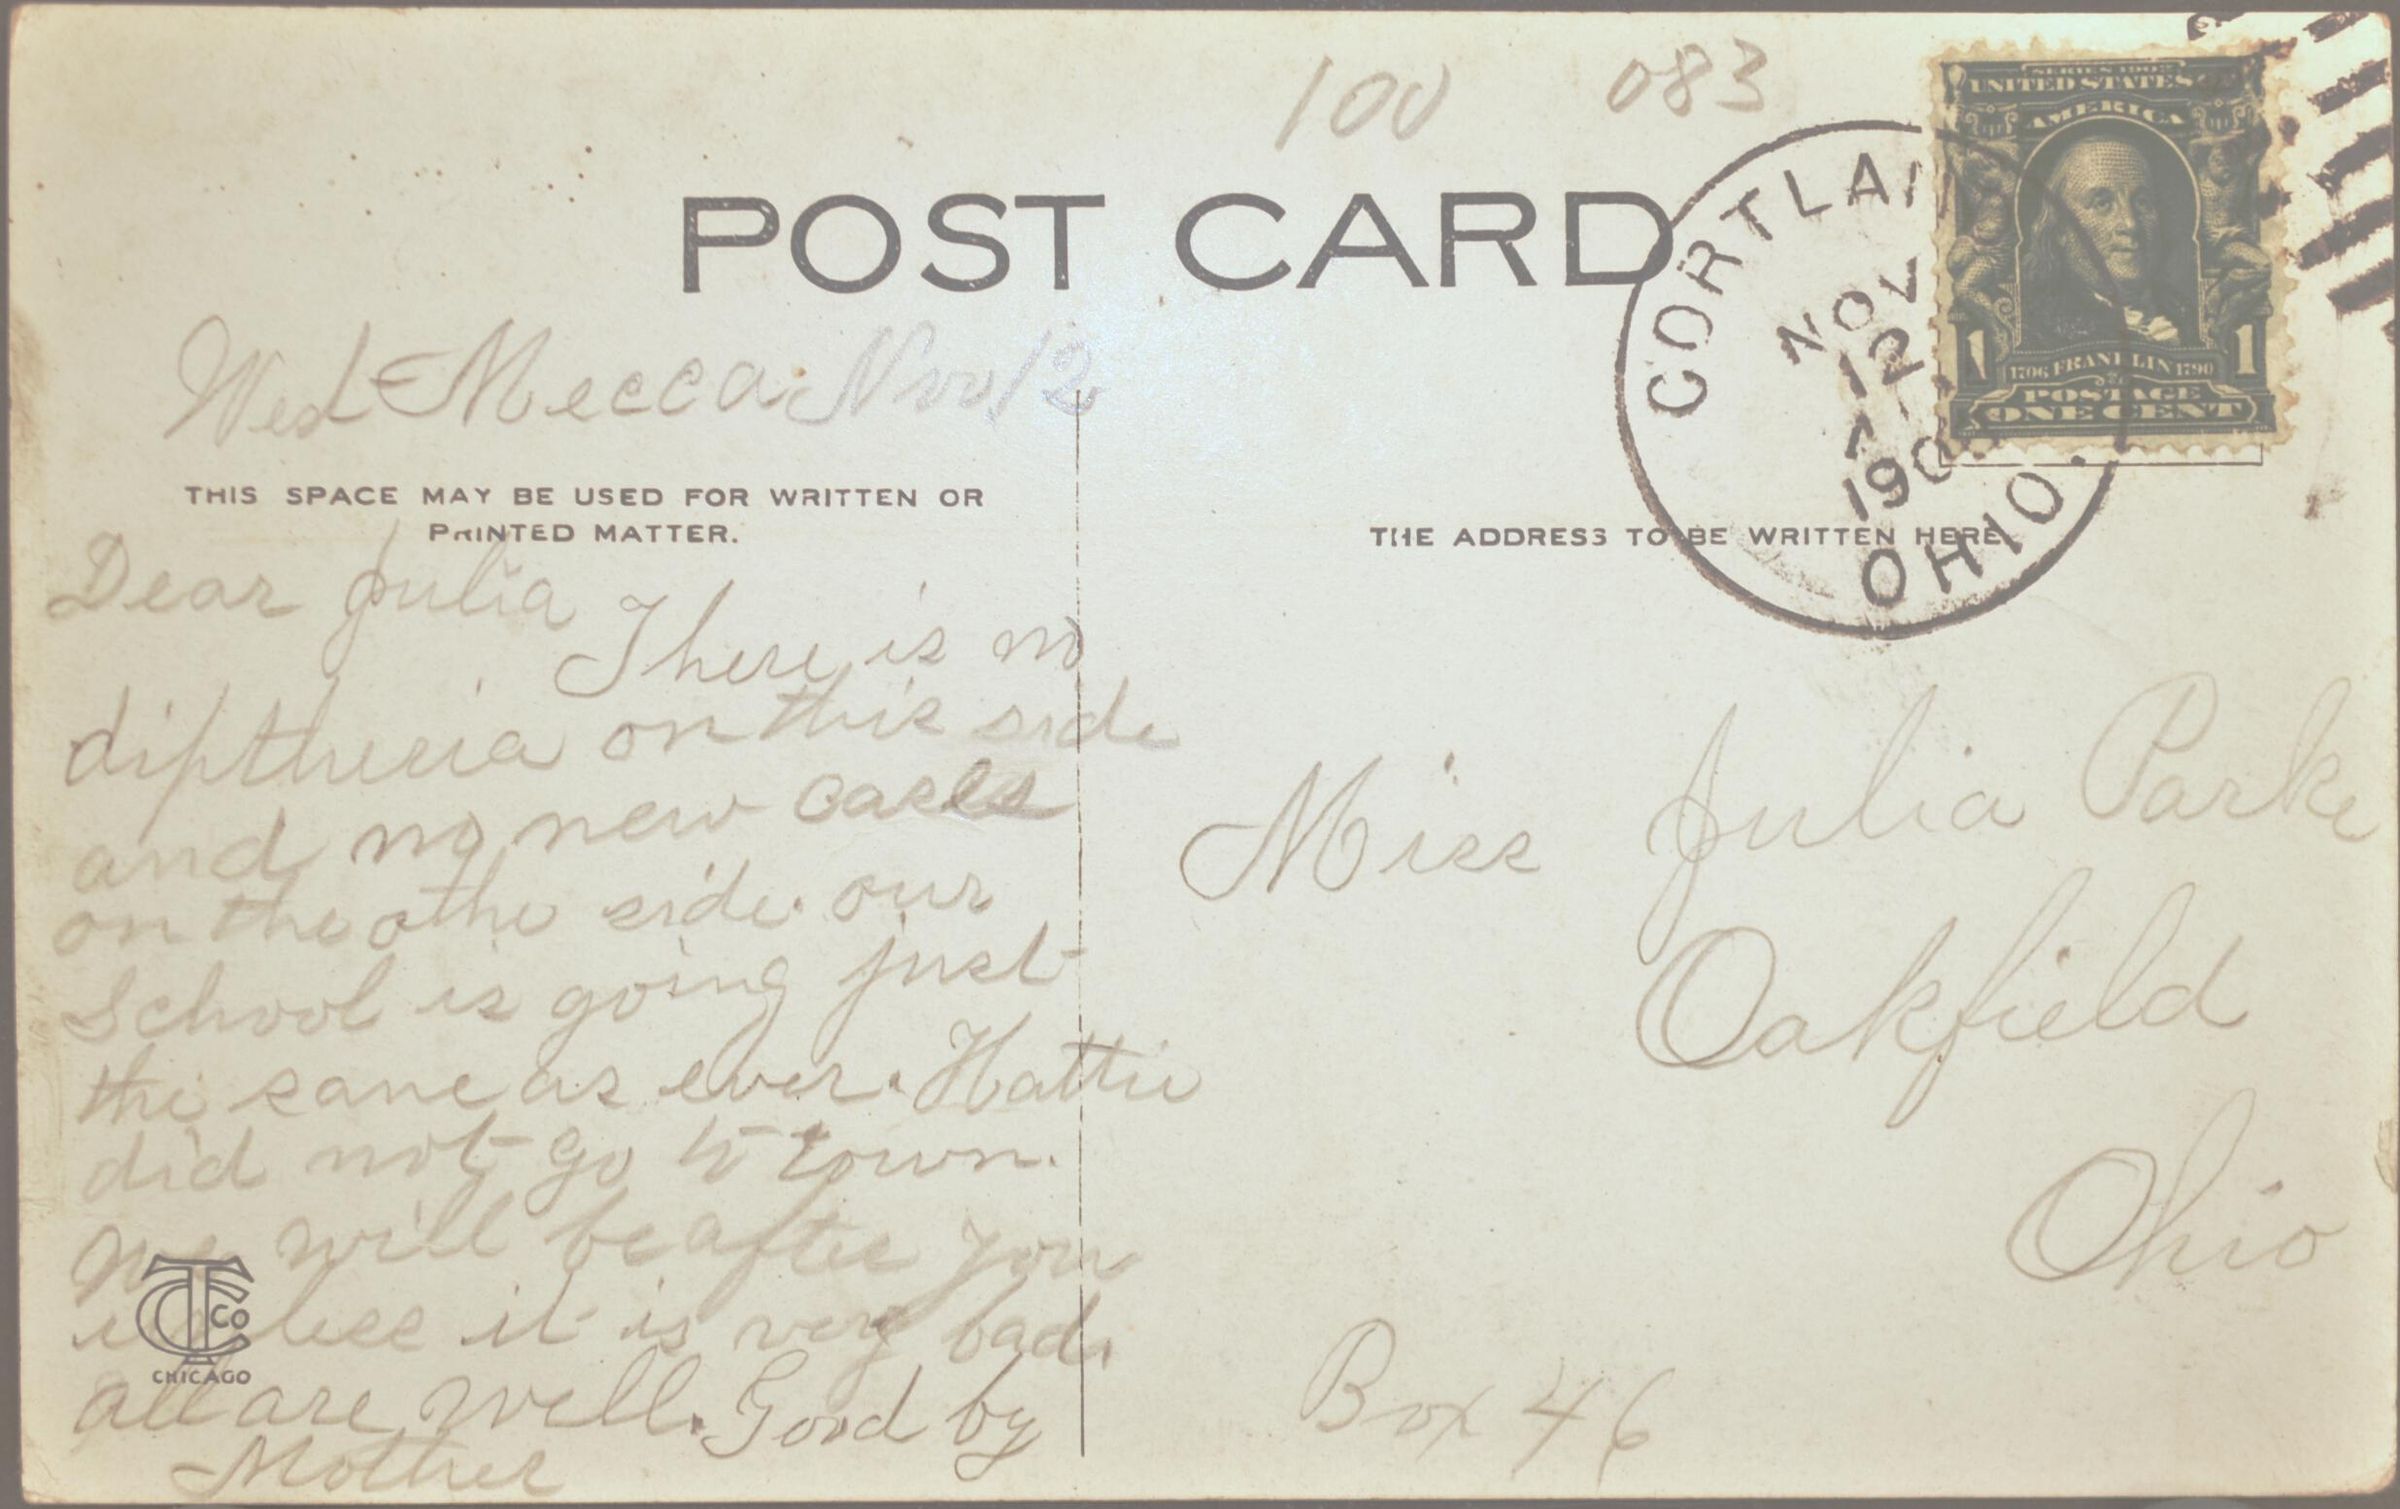 100 083
POST CARD
CORTLAN
NOV
12
7-
190
OHIO.
SERIES 1902
UNITED STATES OF
AMERICA
1 1
1706 FRANKLIN 1790
POSTAGE
ONE CENT
West Mecca Nov 12
THIS SPACE MAY BE USED FOR WRITTEN OR
PRINTED MATTER.
THE ADDRESS TO BE WRITTEN HERE
Dear Julia
There is no
diptheria on this side
and no new cases
on the othe side. our
School is going just
the same as ever. Hattie
did not go to town.
We will be after you
unless it is very bad.
all are well. Good by
Mother
CTCo
CHICAGO
Miss Julia Parke
Oakfield
Ohio
Box 46